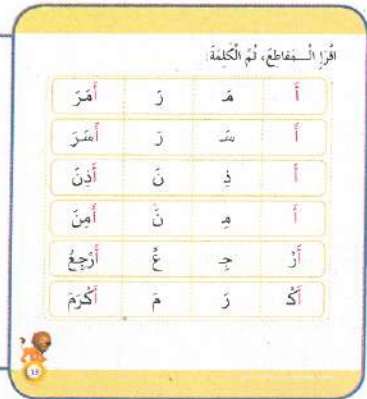 اقْرَإِ الْـمَقاطِعَ، ثُمَّ الْكَلِمَةَ:
أَ مَـ رَ أَمَرَ
أَ سَـ رَ أَسَرَ
أَ ذِ نَ أَذِنَ
أَ مِـ نَ أَمِنَ
أَرْ جِـ عُ أَرْجِعُ
أَكْـ رَ مَ أَكْرَمَ